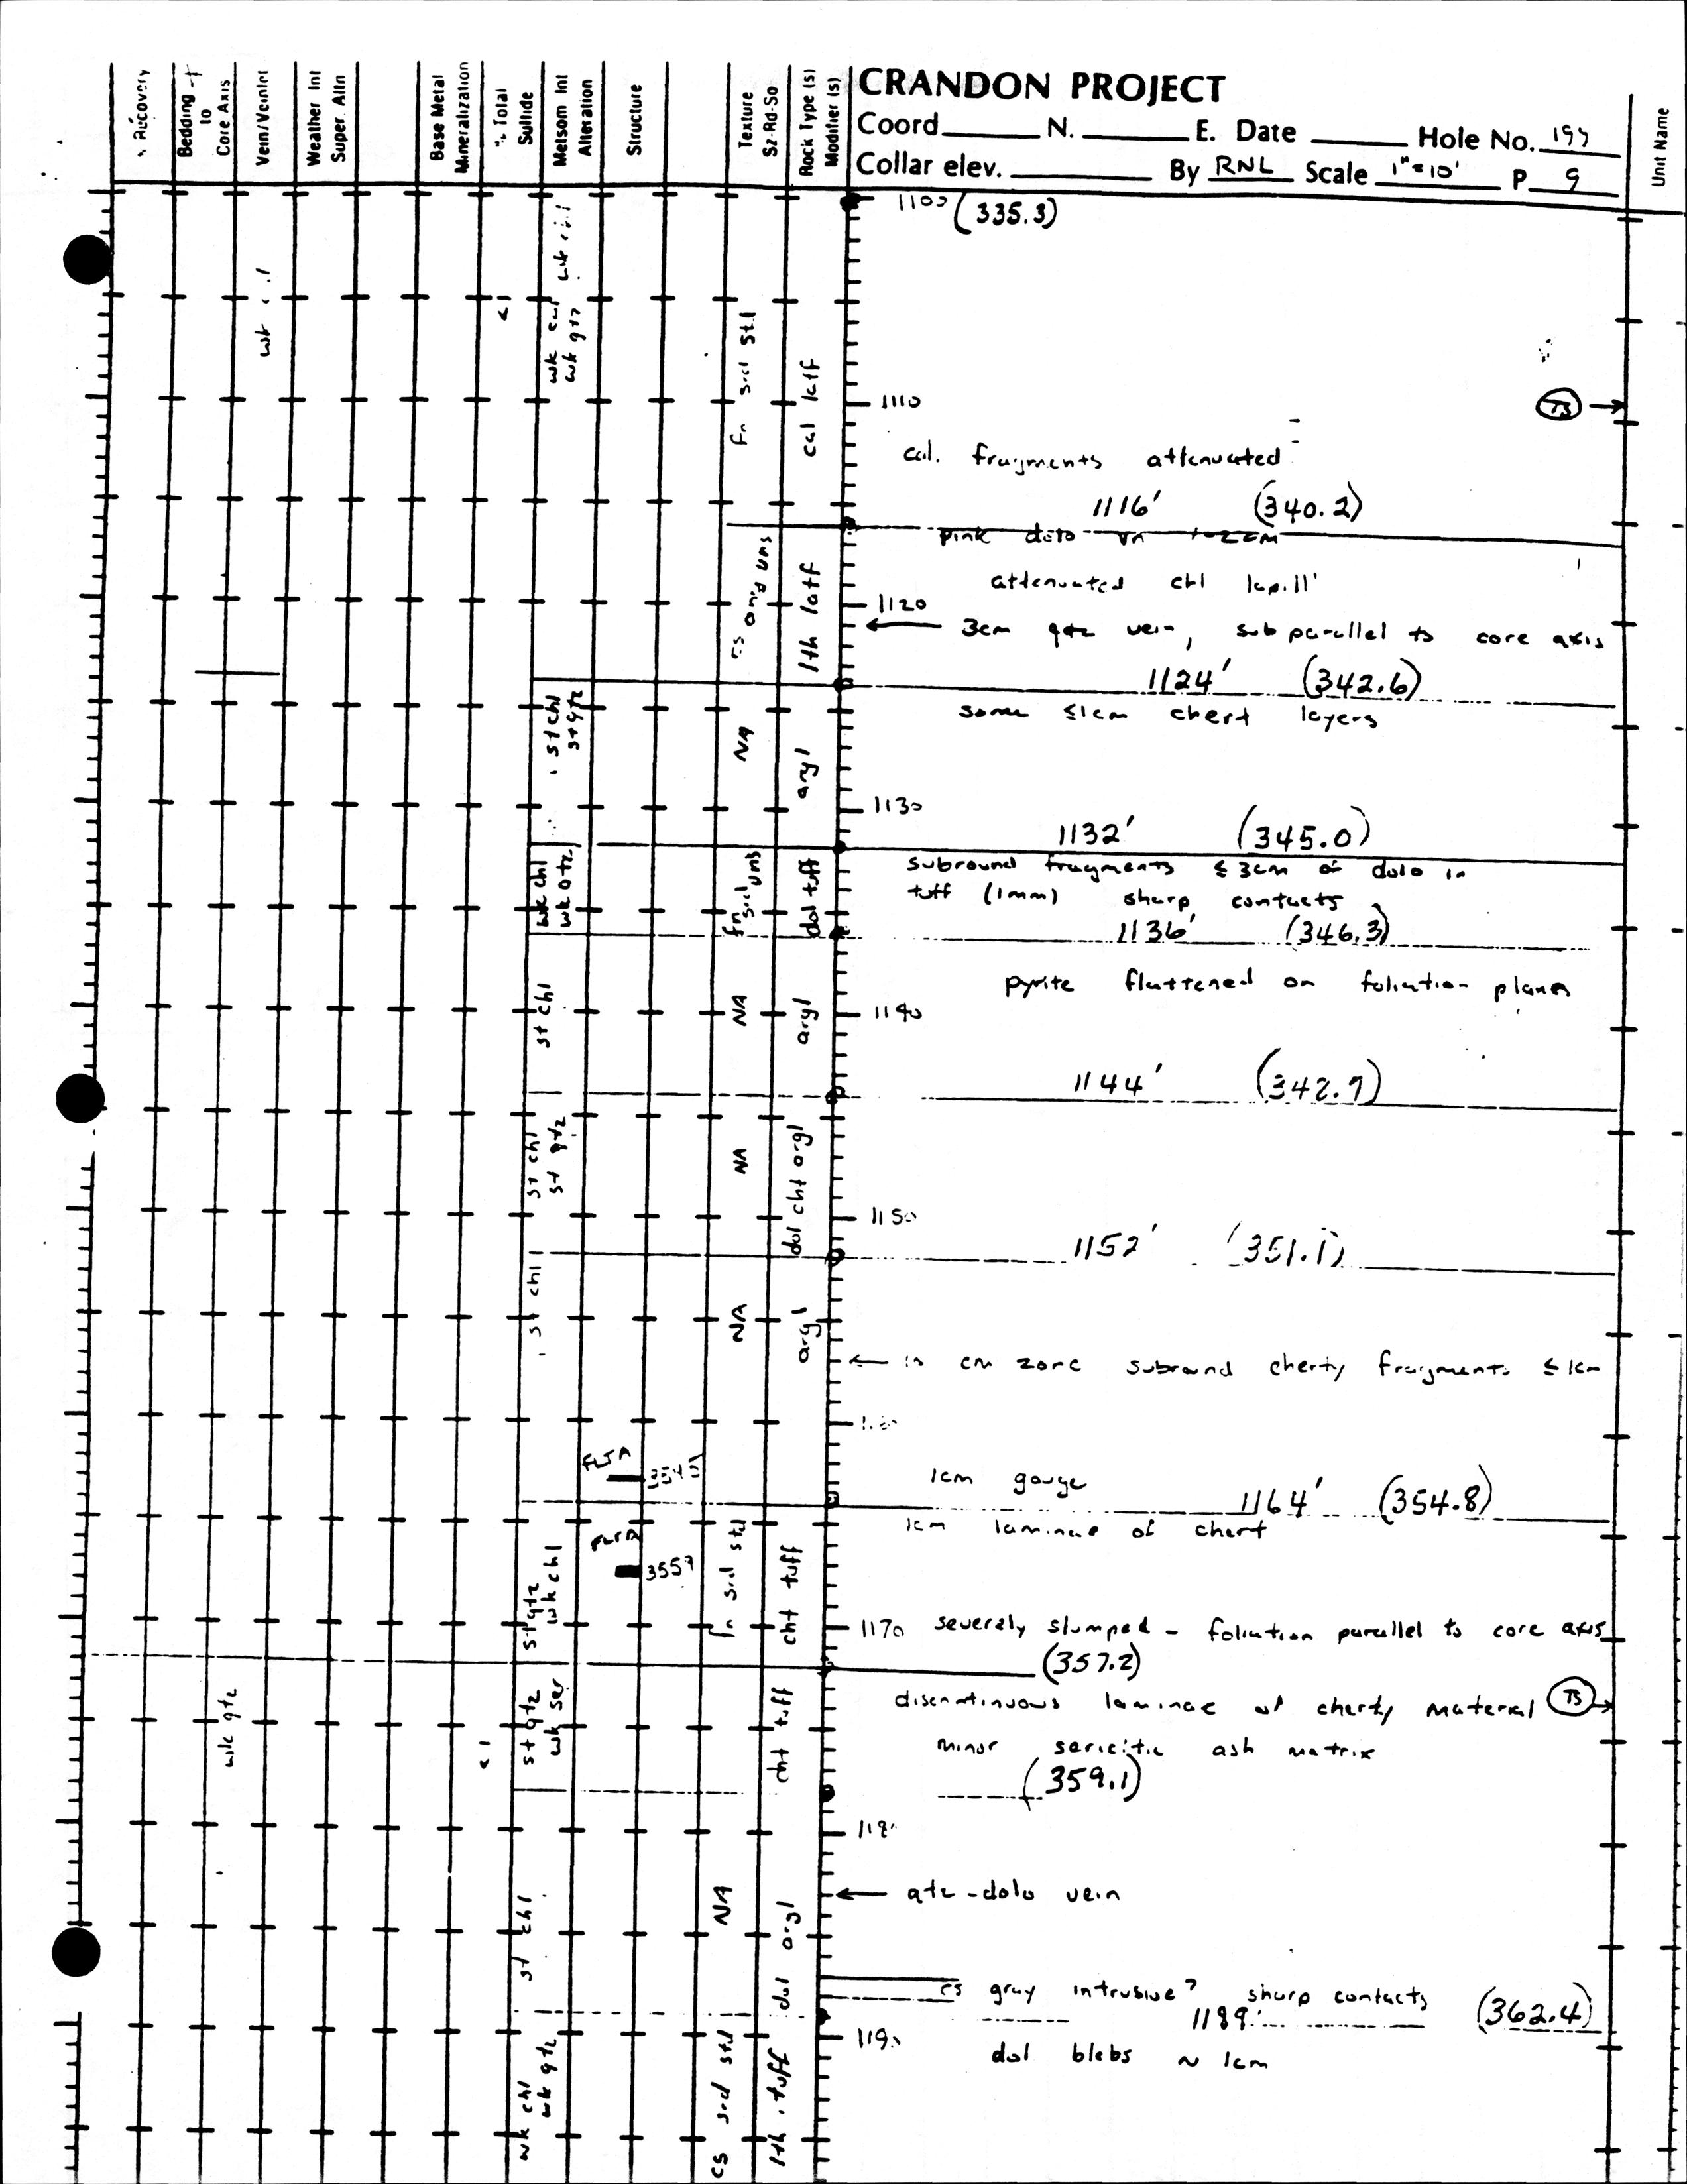 CRANDON PROJECT
Coord. N. E. Date Hole No.
Collar elev. By RNL Scale 1"=10' P 9
% Recovery
Bedding to Core Axis
Vein/Veinlet
Weather Int Super. Altn
Base Metal Mineralization
% Total Sulfide
Metsom Int Alteration
Structure
Texture Sz-Rd-So
Rock Type (s) Modifier (s)
Unit Name
1100 (335.3)
<1
wk cal
wk qtz
fn srd std
cal latf
1110
TS
cal. fragments attenuated
1116' (340.2)
pink dolo vn 1-2cm
attenuated chl lapilli
cs ang uns
lth latf
1120
3cm qtz vein, subparallel to core axis
1124' (342.6)
some ≤1cm chert layers
st chl
st qtz
NA
argl
1130
1132' (345.0)
subround fragments ≤3cm of dolo in
tuff (1mm) sharp contacts
wk chl
wk qtz
fn srd uns
dol tuff
1136' (346.3)
pyrite flattened on foliation planes
st chl
NA
argl
1140
1144' (342.7)
st chl
st qtz
NA
dol cht argl
1150
1152' (351.1)
st chl
NA
argl
10 cm zone subround cherty fragments ≤1cm
FLTA
1cm gouge 1164' (354.8)
1cm laminae of chert
3557
st qtz
wk chl
fn srd std
cht tuff
1170 severely slumped - foliation parallel to core axis
(357.2)
discontinuous laminae of cherty material TS
minor sericitic ash matrix
(359.1)
wk qtz
<1
st qtz
wk ser
cht tuff
1180
qtz-dolo vein
st chl
NA
dol argl
cs gray intrusive? sharp contacts (362.4)
1189'
1190
dol blebs ~ 1cm
wk chl
wk qtz
cs srd std
lth. tuff